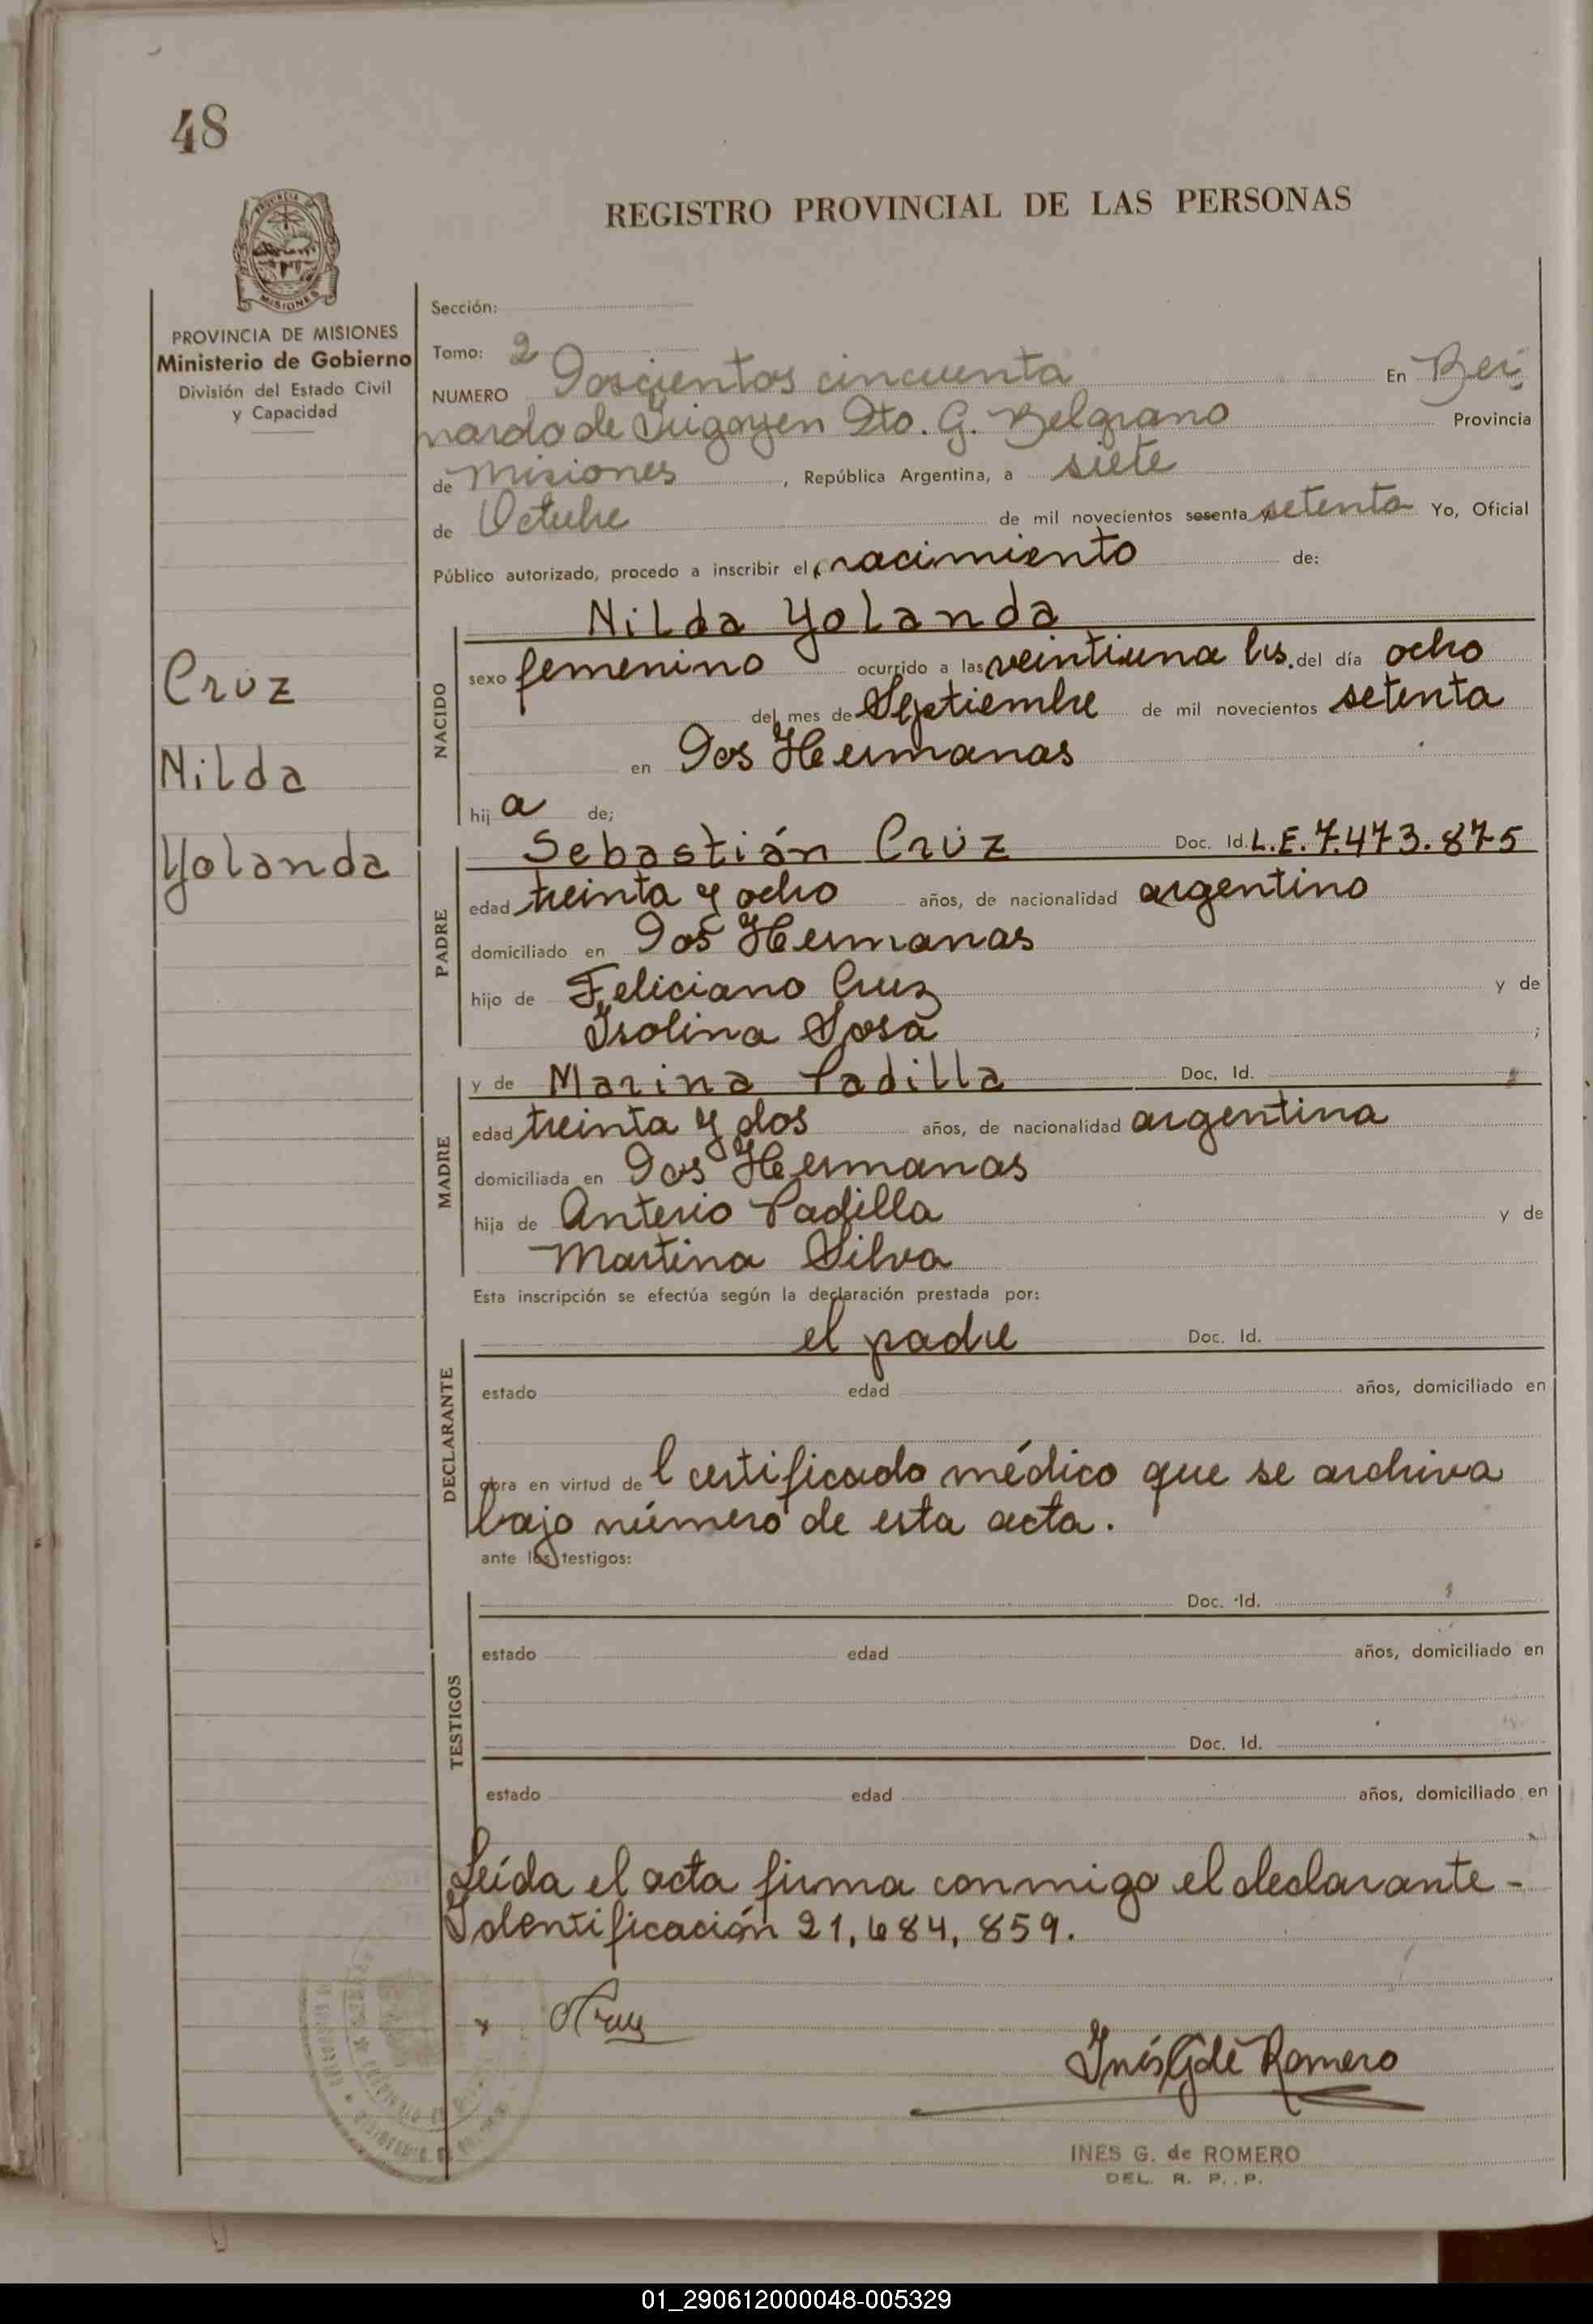 48
REGISTRO PROVINCIAL DE LAS PERSONAS
PROVINCIA DE MISIONES
Ministerio de Gobierno
División del Estado Civil
y Capacidad
Cruz
Nilda
Yolanda
Sección:
Tomo: 2
NUMERO Doscientos cincuenta En Ber
nardo de Irigoyen Dto. G. Belgrano Provincia
de Misiones , República Argentina, a siete
de Octubre de mil novecientos sesenta y setenta Yo, Oficial
Público autorizado, procedo a inscribir el nacimiento de:
NACIDO
Nilda Yolanda
sexo femenino ocurrido a las veintiuna hs. del día ocho
del mes de Septiembre de mil novecientos setenta
en Dos Hermanas
hij a de;
PADRE
Sebastián Cruz Doc. Id. L.E. 7.473.875
edad treinta y ocho años, de nacionalidad argentino
domiciliado en Dos Hermanas
hijo de Feliciano Cruz y de
Isolina Sosa ;
MADRE
y de Marina Padilla Doc. Id.
edad treinta y dos años, de nacionalidad argentina
domiciliada en Dos Hermanas
hija de Anterio Padilla y de
Martina Silva
Esta inscripción se efectúa según la declaración prestada por:
DECLARANTE
el padre Doc. Id.
estado edad años, domiciliado en
obra en virtud de l certificado médico que se archiva
bajo número de esta acta.
ante los testigos:
TESTIGOS
Doc. Id.
estado edad años, domiciliado en
Doc. Id.
estado edad años, domiciliado en
Leída el acta firma conmigo el declarante -
Identificación 21,684,859.
Inés G de Romero
INES G. de ROMERO
DEL. R. P. P.
01_290612000048-005329